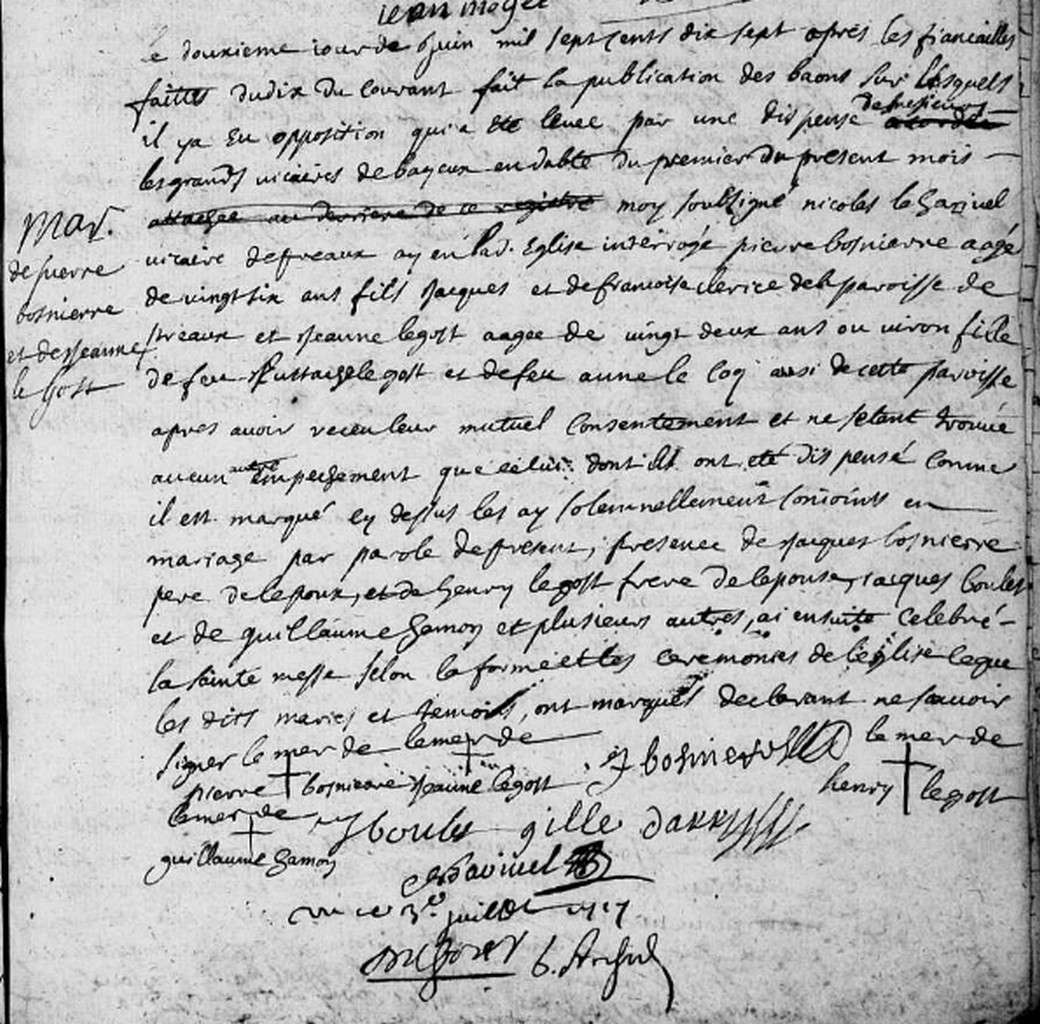 jean
Le douxieme jour de Juin mil sept cents dix sept apres les fiancailles
faittes du dix du courant fait la publication des baons sur lesquels
il ya eu opposition qui a eté levee par une dispense de messieurs
les grands vicaires de bayeux en datte du premier du present mois
attachee au derriere de ce registre moy soubsigné nicolas le havivel
vicaire destreaux ay en lad. Eglise interrogé pierre bosnierre aagé
de vingt six ans fils Jacques et de francoise clerice de la paroisse de
streaux et Jeanne legost aagee de vingt deux ans ou viron fille
de feu legost et de feu anne le coq ausi de cette paroisse
Mar.
de pierre
bosnierre
et de Jeanne
le Gost
apres avoir receu leur mutuel consentement et ne setant trouvé
aucun autre empeschement que celui dont ils ont eté dispensé comme
il est marqué cy dessus les ay solemnellement conioints en
mariage par parole de present, presence de Jacques bosnierre
pere de lepoux, et de henry legost frere de lepouse, iacques boules
et de guillaume hamon et plusieurs autres, ai ensuite celebré
la sainte messe selon la forme et les ceremonies de l'église
les dits mariés et temoins, ont marqués declarant ne scavoir
signer le mer de le mer de J bosnierre le mer de
pierre bosnierre jeanne legost henry legost
le mer de J boules gille
guillaume hamon
havivel
vu ce 3e juillet 1717